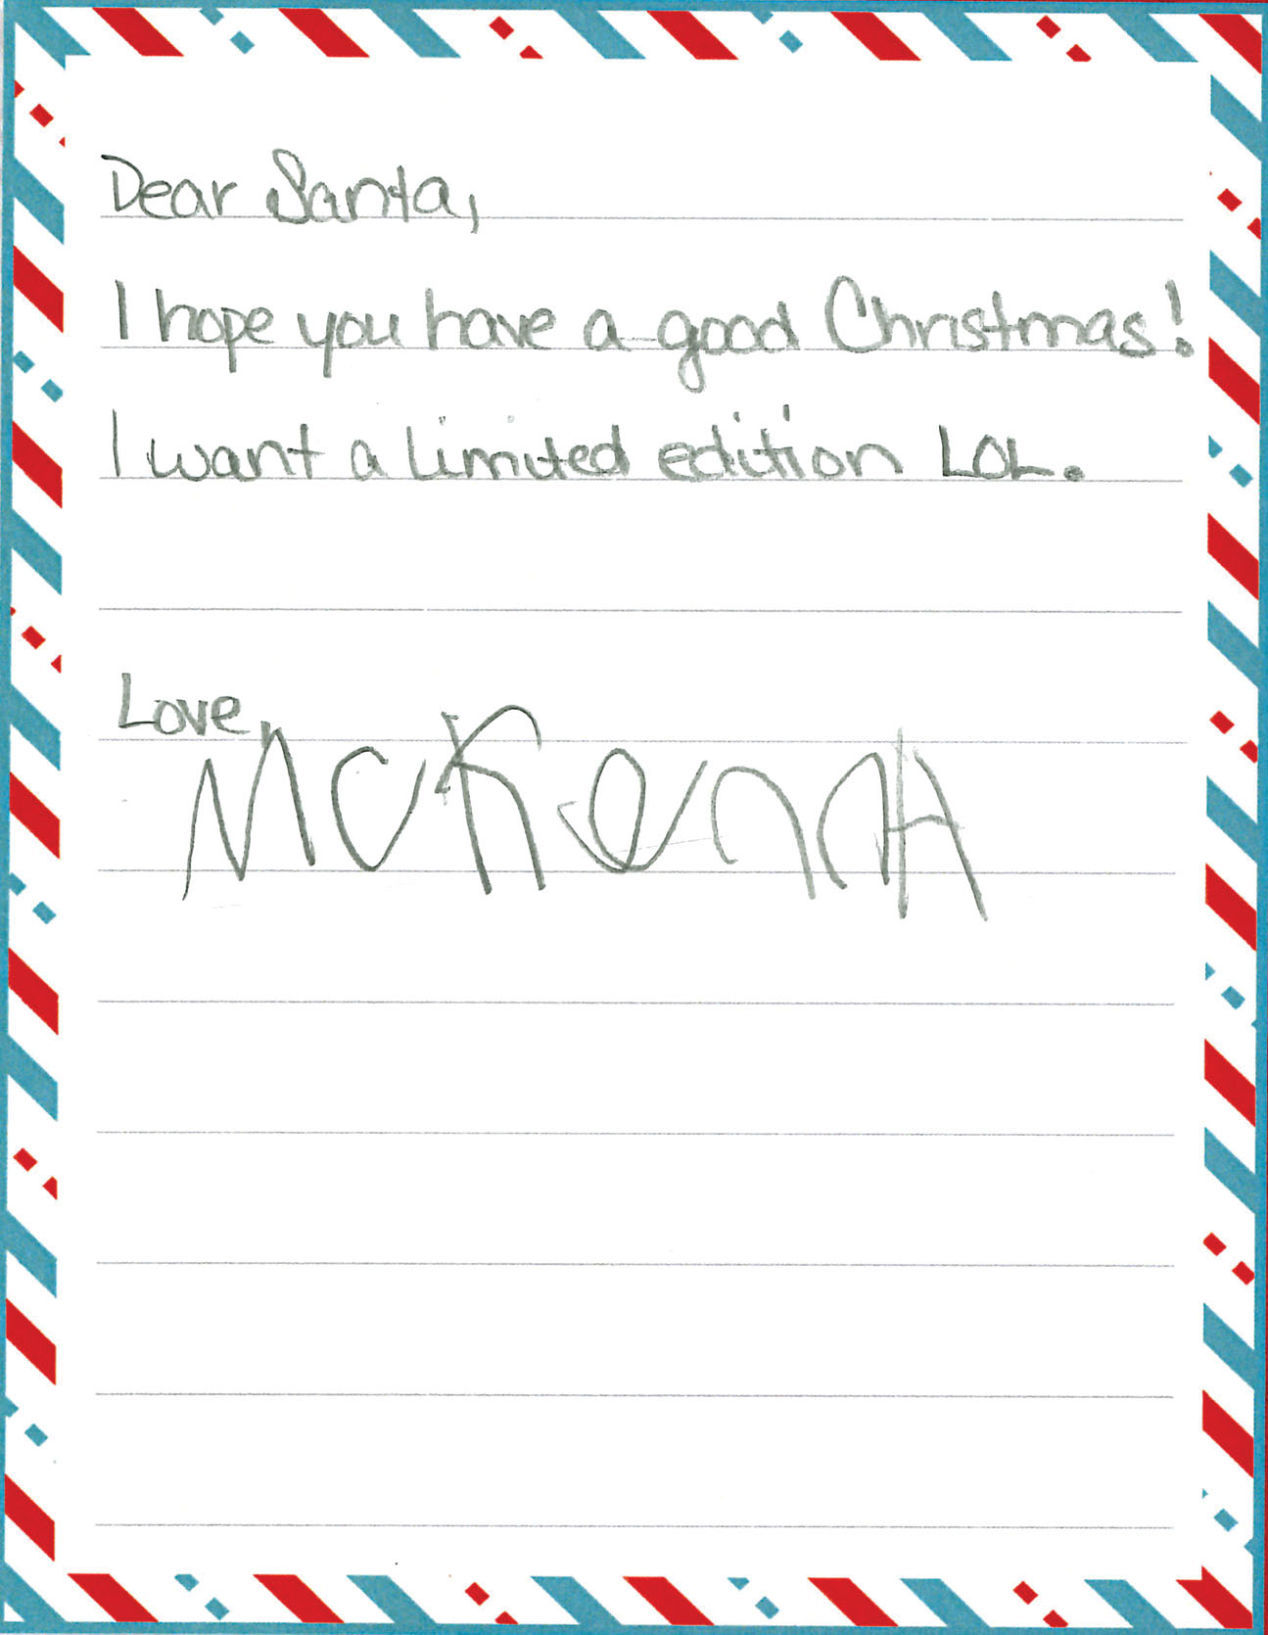 Dear Santa,
I hope you have a good Christmas!
I want a limited edition LOL.
Love,
McKennA